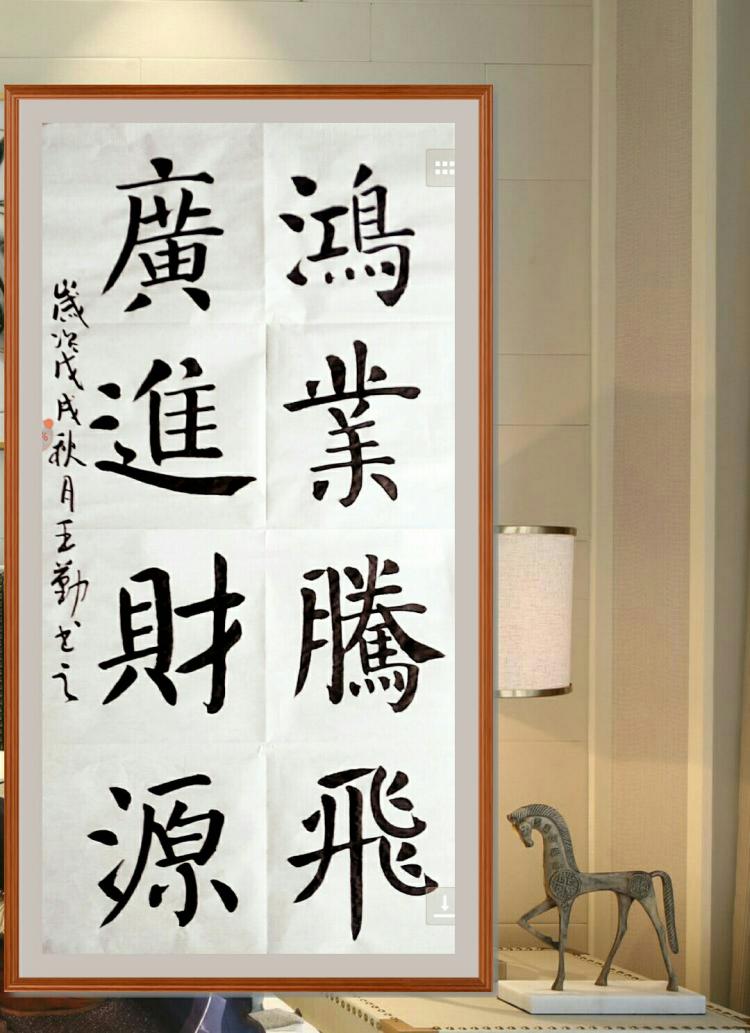 鴻業騰飛
廣進財源
歲次戊戌秋月王勤书之